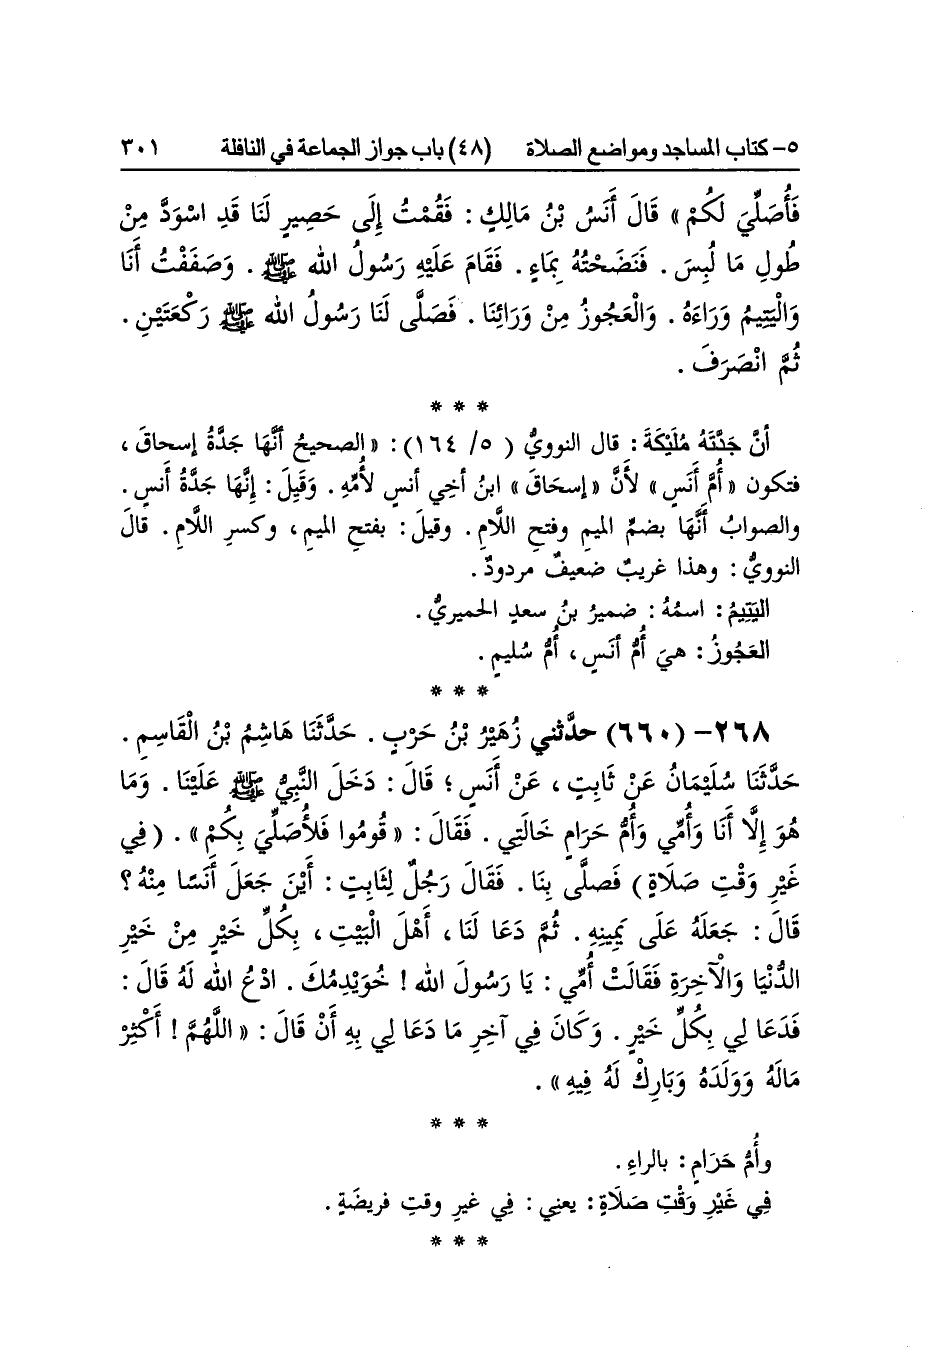 ٥- كتاب المساجد ومواضع الصلاة (٤٨) باب جواز الجماعة في النافلة ٣٠١
فَأُصَلِّيَ لَكُمْ» قَالَ أَنَسُ بْنُ مَالِكٍ: فَقُمْتُ إِلَى حَصِيرٍ لَنَا قَدِ اسْوَدَّ مِنْ
طُولِ مَا لُبِسَ. فَنَضَحْتُهُ بِمَاءٍ. فَقَامَ عَلَيْهِ رَسُولُ الله ﷺ. وَصَفَفْتُ أَنَا
وَالْيَتِيمُ وَرَاءَهُ. وَالْعَجُوزُ مِنْ وَرَائِنَا. فَصَلَّى لَنَا رَسُولُ الله ﷺ رَكْعَتَيْنِ.
ثُمَّ انْصَرَفَ.
* * *
أنَّ جَدَّتَهُ مُلَيْكَةَ: قال النوويُّ (٥/ ١٦٤): «الصحيحُ أنَّهَا جَدَّةُ إسحاقَ،
فتكون «أُمَّ أنَسٍ» لأَنَّ «إسحَاقَ» ابنُ أخي أنسٍ لأُمِّهِ. وَقِيلَ: إنَّهَا جَدَّةُ أنسٍ.
والصوابُ أنَّهَا بضمِّ الميمِ وفتحِ اللَّامِ. وقيلَ: بفتحِ الميمِ، وكسرِ اللَّامِ. قالَ
النوويُّ: وهذا غريبٌ ضعيفٌ مردودٌ.
اليَتِيمُ: اسمُهُ: ضميرُ بنُ سعدٍ الحميريُّ.
العَجُوزُ: هيَ أُمُّ أنَسٍ، أُمُّ سُليمٍ.
* * *
٢٦٨- (٦٦٠) حدَّثني زُهَيْرُ بْنُ حَرْبٍ. حَدَّثَنَا هَاشِمُ بْنُ الْقَاسِمِ.
حَدَّثَنَا سُلَيْمَانُ عَنْ ثَابِتٍ، عَنْ أَنَسٍ؛ قَالَ: دَخَلَ النَّبِيُّ ﷺ عَلَيْنَا. وَمَا
هُوَ إِلَّا أَنَا وَأُمِّي وَأُمُّ حَرَامٍ خَالَتِي. فَقَالَ: «قُومُوا فَلأُصَلِّيَ بِكُمْ». (فِي
غَيْرِ وَقْتِ صَلَاةٍ) فَصلَّى بِنَا. فَقَالَ رَجُلٌ لِثَابِتٍ: أَيْنَ جَعَلَ أَنَسًا مِنْهُ؟
قَالَ: جَعَلَهُ عَلَى يَمِينِهِ. ثُمَّ دَعَا لَنَا، أَهْلَ الْبَيْتِ، بِكُلِّ خَيْرٍ مِنْ خَيْرِ
الدُّنْيَا وَالْآخِرَةِ فَقَالَتْ أُمِّي: يَا رَسُولَ الله! خُوَيْدِمُكَ. ادْعُ الله لَهُ قَالَ:
فَدَعَا لِي بِكُلِّ خَيْرٍ. وَكَانَ فِي آخِرِ مَا دَعَا لِي بِهِ أَنْ قَالَ: «اللَّهُمَّ! أَكْثِرْ
مَالَهُ وَوَلَدَهُ وَبَارِكْ لَهُ فِيهِ».
* * *
وأُمُّ حَرَامٍ: بالراءِ.
فِي غَيْرِ وَقْتِ صَلَاةٍ: يعنِي: فِي غيرِ وقتِ فريضَةٍ.
* * *